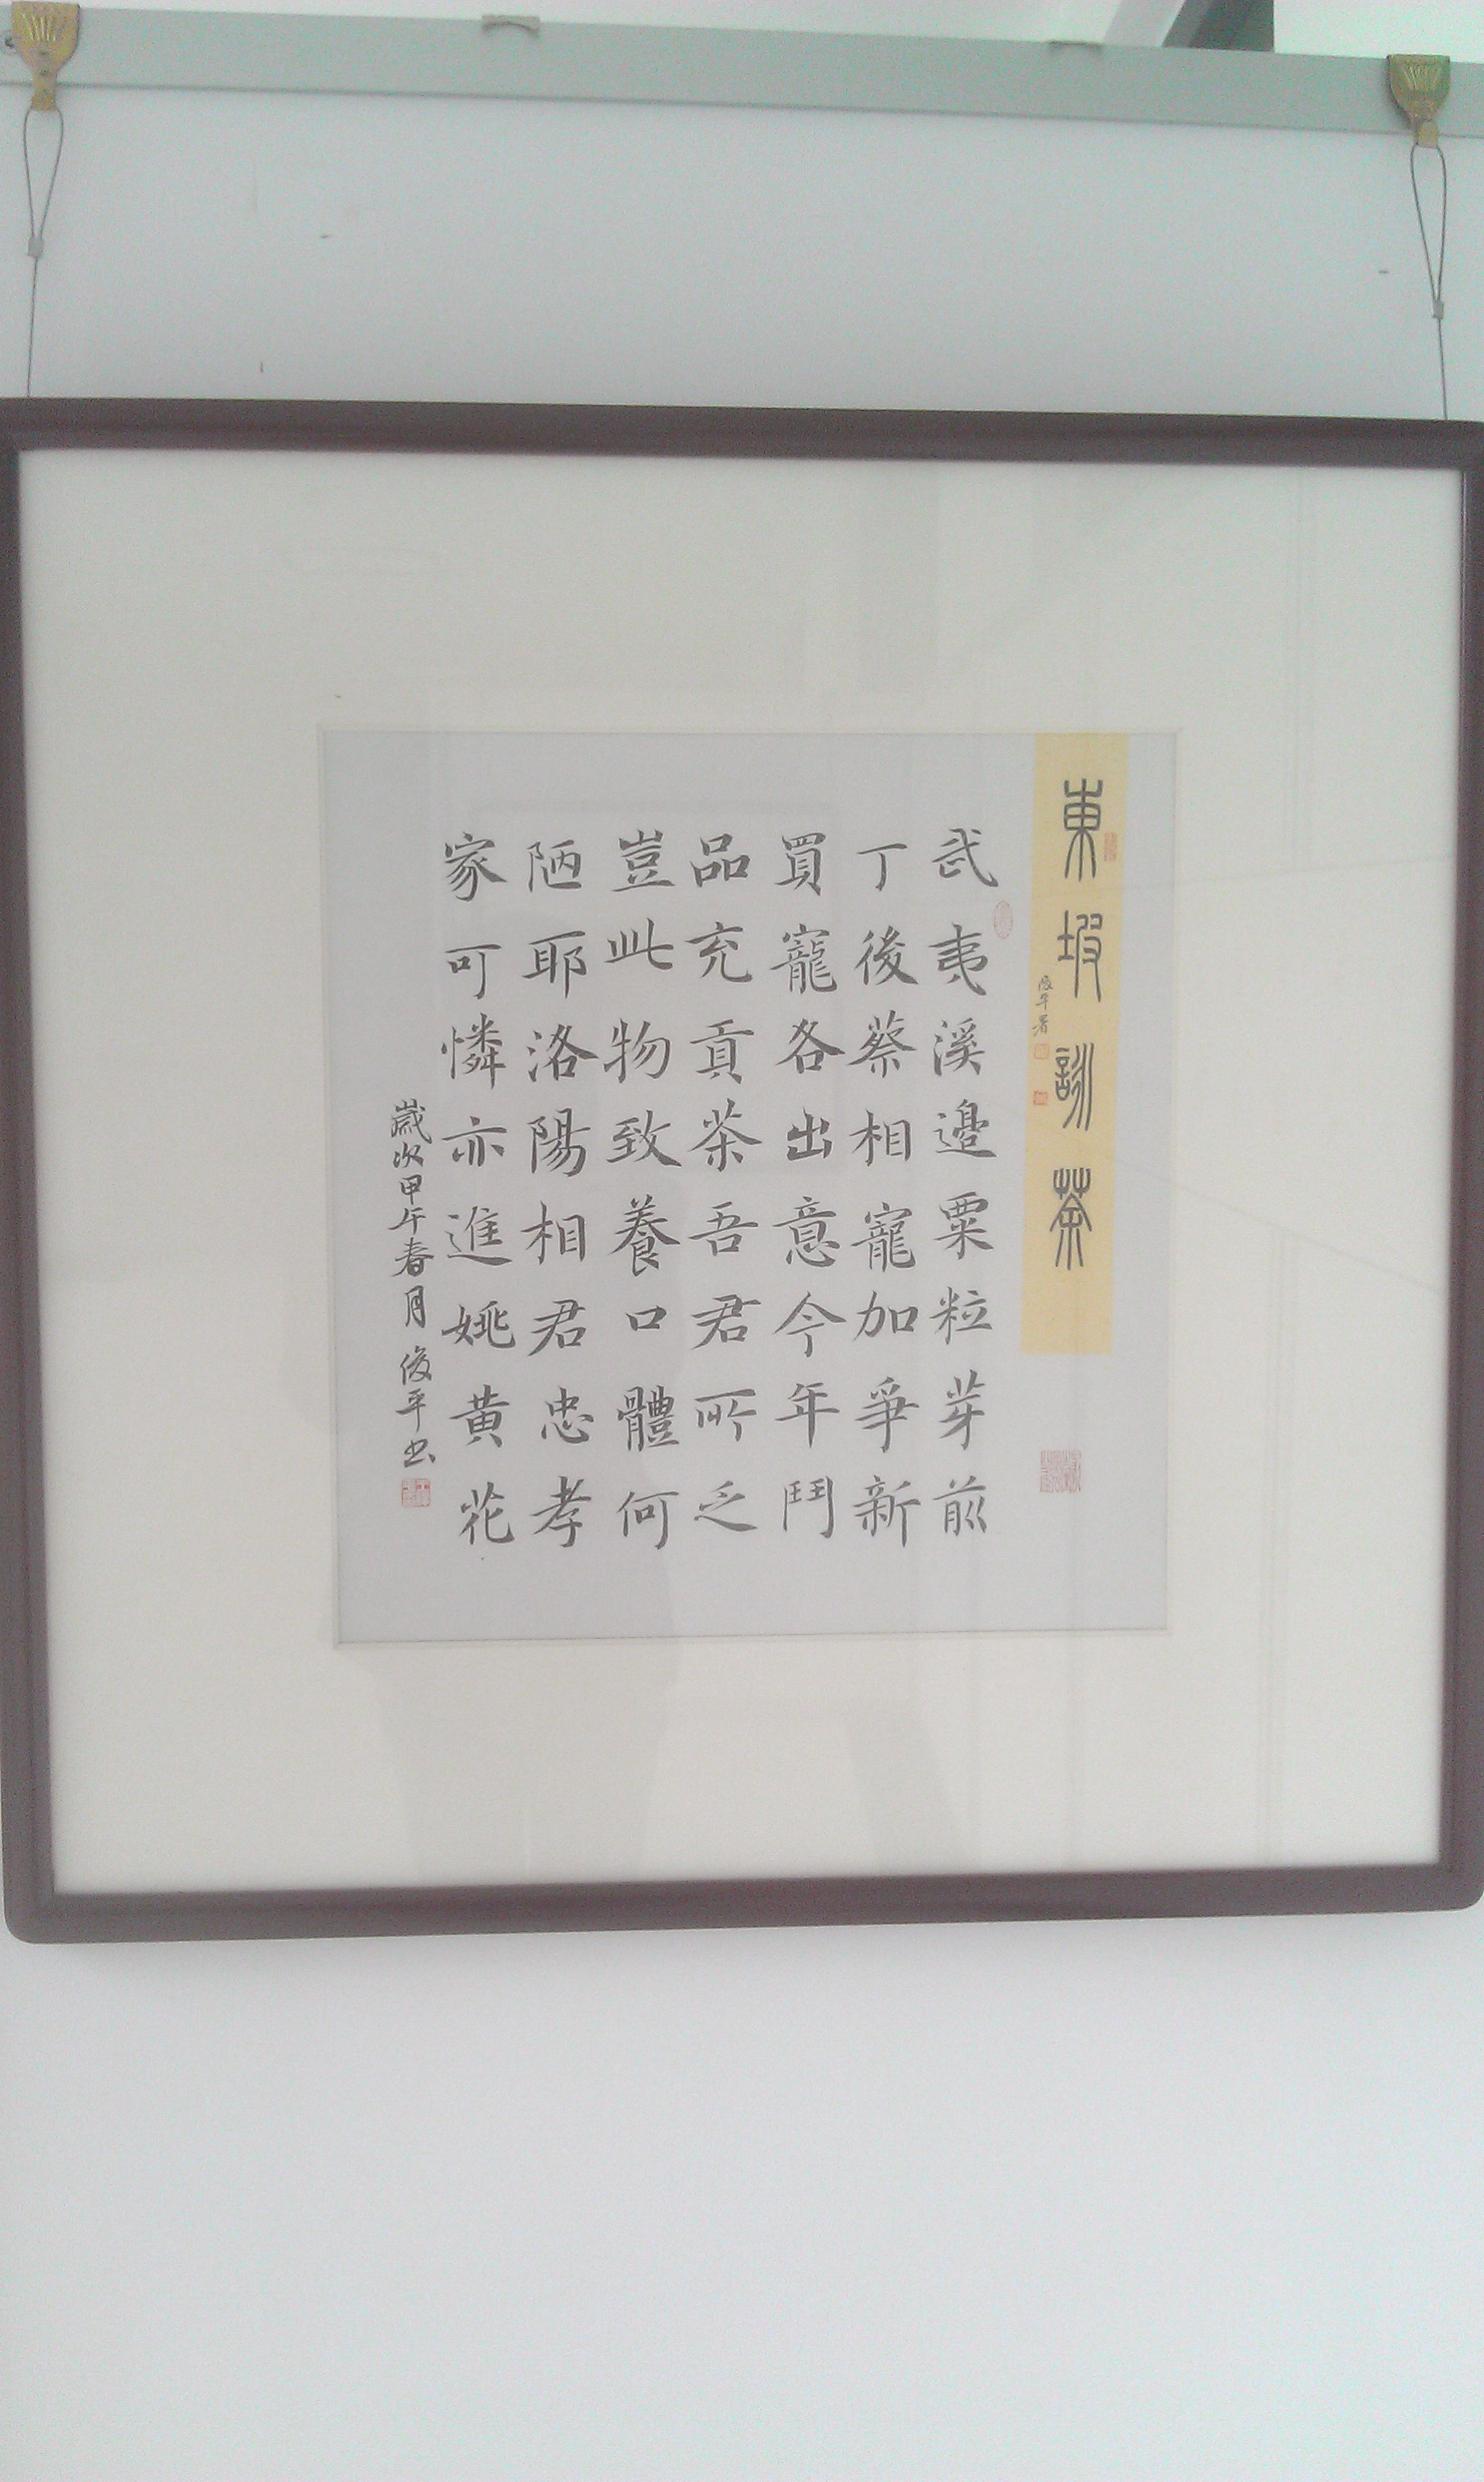 東坡詠茶
俊平署
武夷溪邊粟粒芽前
丁後蔡相寵加爭新
買寵各出意今年鬥
品充貢茶吾君所乏
豈此物致養口體何
陋耶洛陽相君忠孝
家可憐亦進姚黃花
歲次甲午春月俊平书